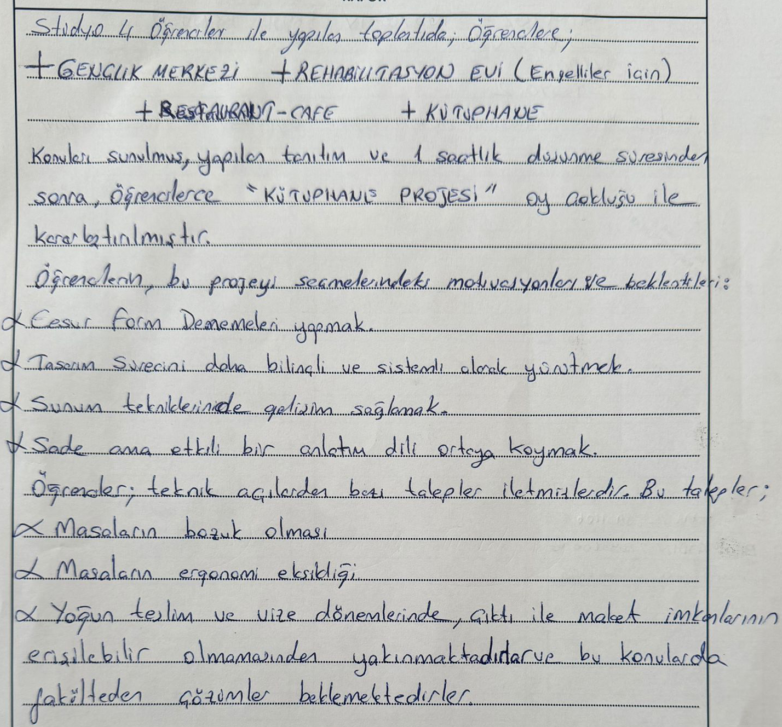 Stüdyo 4 Öğrenciler ile yapılan toplantıda; Öğrencilere;
+ GENÇLİK MERKEZİ + REHABİLİTASYON EVİ (Engelliler için)
+ RESTAURANT-CAFE + KÜTÜPHANE
Konuları sunulmuş, yapılan tanıtım ve 1 saatlik düşünme süresinden
sonra, Öğrencilerce "KÜTÜPHANE PROJESİ" oy çokluğu ile
kararlaştırılmıştır.
Öğrencilerin, bu projeyi seçmelerindeki motivasyonları ve beklentileri:
∝ Cesur Form Denemeleri yapmak.
∝ Tasarım Sürecini daha bilinçli ve sistemli olarak yürütmek.
∝ Sunum tekniklerinde gelişim sağlamak.
∝ Sade ama etkili bir anlatım dili ortaya koymak.
Öğrenciler; teknik açılardan bazı talepler iletmişlerdir. Bu talepler;
∝ Masaların bozuk olması
∝ Masaların ergonomi eksikliği
∝ Yoğun teslim ve vize dönemlerinde, çıktı ile maket imkanlarının
erişilebilir olmamasından yakınmaktadırlar ve bu konularda
fakülteden çözümler beklemektedirler.